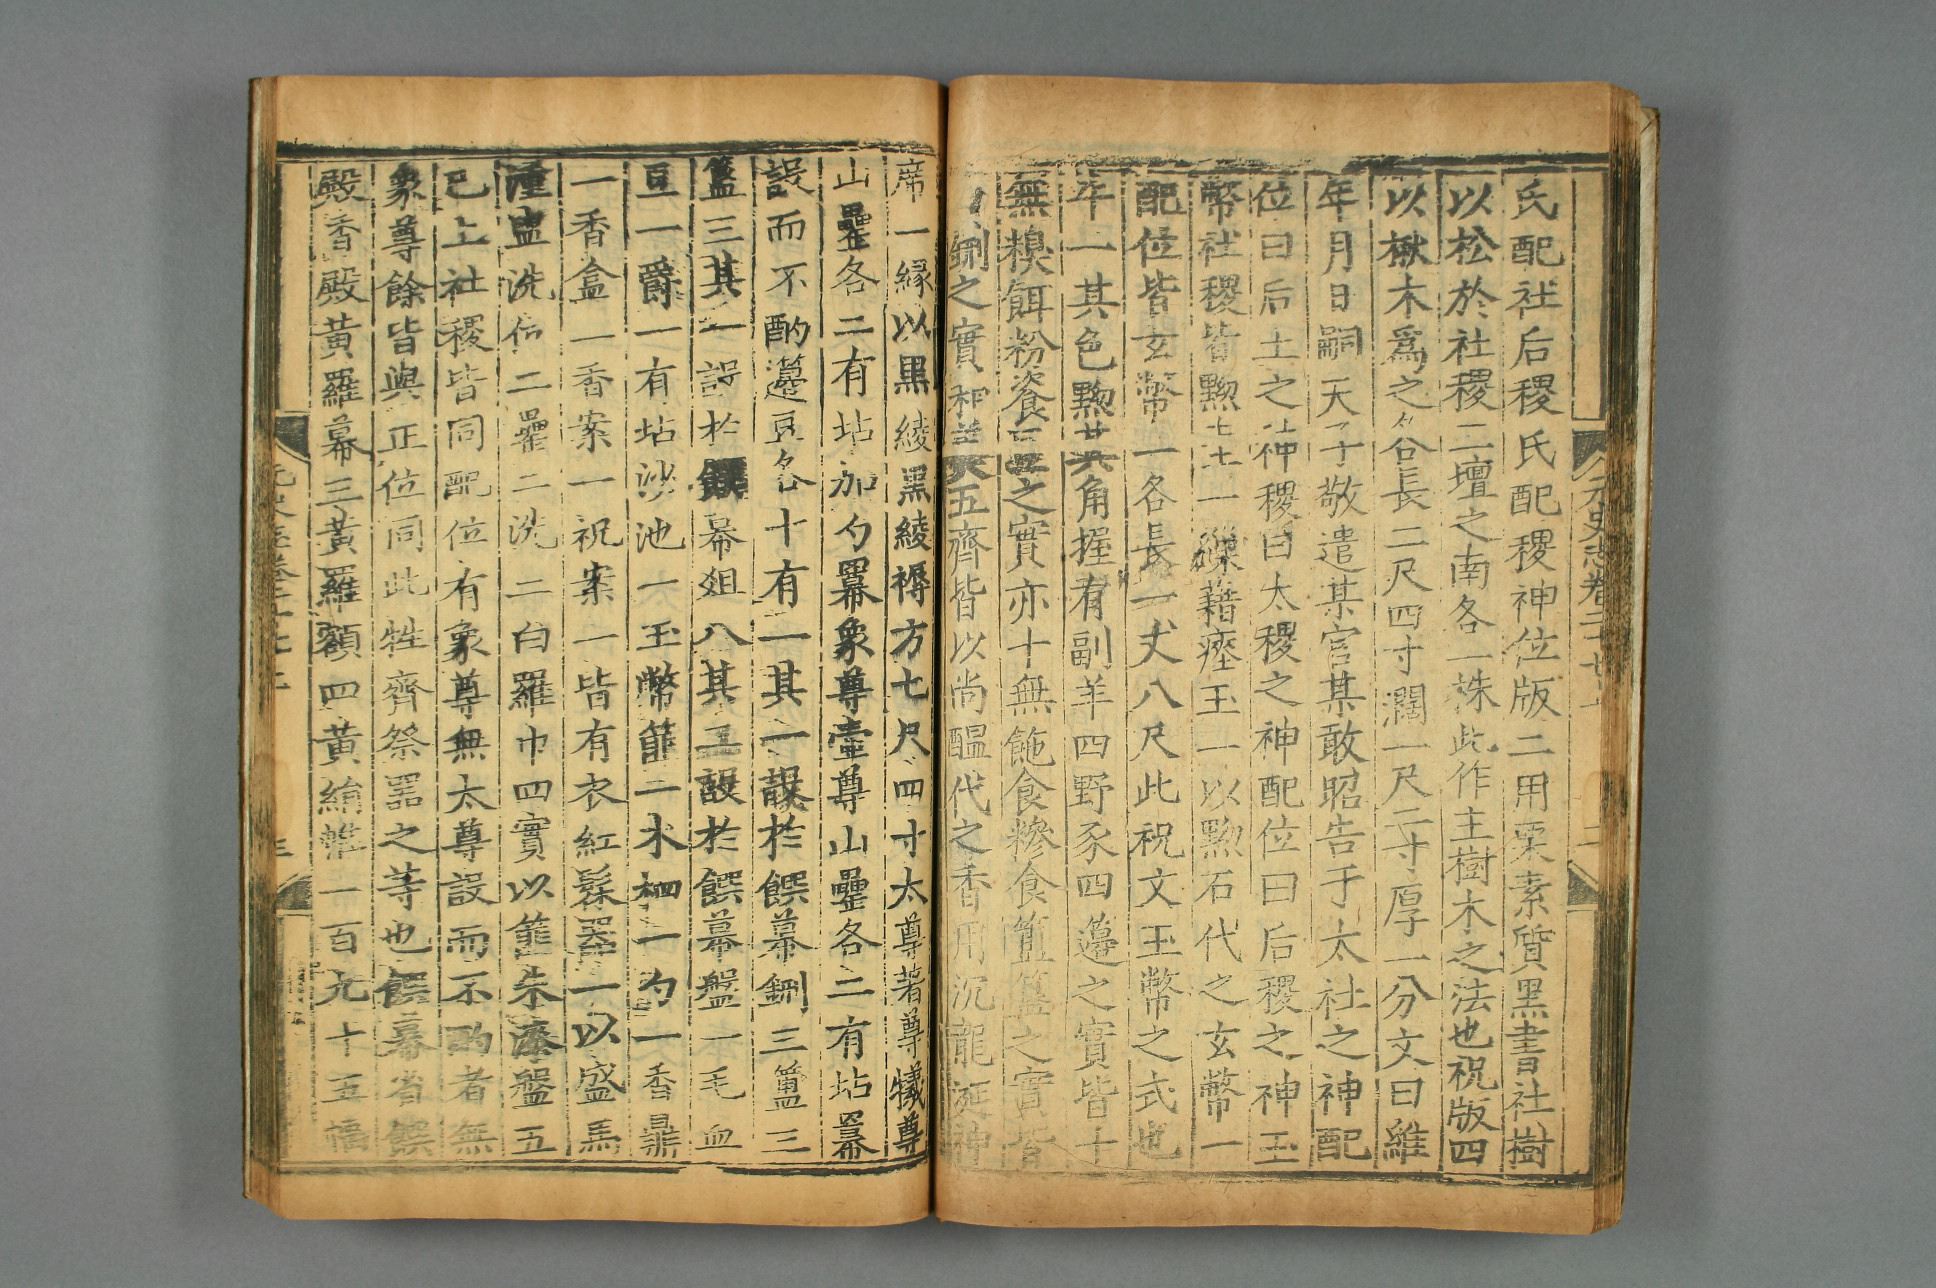 元史志卷二十七上 二
氏配社后稷氏配稷神位版二用栗素質黑書社樹
以松於社稷二壇之南各一株此作主樹木之法也祝版四
以楸木爲之各長二尺四寸濶一尺二寸厚一分文曰維
年月日嗣天子敬遣某官某敢昭告于太社之神配
位曰后土之神稷曰太稷之神配位曰后稷之神玉
幣社稷皆黝圭一繅藉瘞玉一以黝石代之玄幣一
配位皆玄幣一各長一丈八尺此祝文玉幣之式也
牛一其色黝其角握有副羊四野豕四籩之實皆十
無糗餌粉餈豆之實亦十無飽食糝食簠簋之實皆
鉶之實和羹五齊皆以尚醖代之香用沉龍涎神
席一緣以黒綾黑綾褥方七尺四寸太尊著尊犧尊
山罍各二有坫加勺冪象尊壺尊山罍各二有坫冪
設而不酌籩豆各十有一其一設於饌幕鉶三簠三
簋三其一設於饌幕俎八其三設於饌幕盤一毛血
豆一爵一有坫沙池一玉幣篚二木柶一勺一香鼎
一香盒一香案一祝案一皆有衣紅髹器一以盛馬
湩盥洗位二罍二洗二白羅巾四實以篚朱漆盤五
已上社稷皆同配位有象尊無太尊設而不酌者無
象尊餘皆與正位同此牲齊祭器之等也饌幕省饌
殿香殿黃羅幕三黃羅額四黃絹帷一百九十五幅
元史志卷二十七上 三